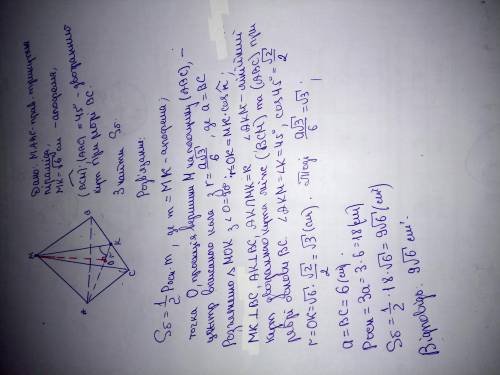 Дано: MABC - прав. трикутна
піраміда,
MK=√6 см - апофема,
(BCM)^(ABC) = 45° - двогранний
кут при ребрі BC.
Знайти Sб.
M
A
B
C
K
O
Розв'язання:
Sб = 1/2 Pосн · m, де m = MK - апофема;
точка O, проекція вершини M на площину (ABC), -
центр вписаного кола з r = a√3/6, де a = BC
Розглянемо Δ MOK з ∠O=90°: r=OK = MK·cosK;
MK ⊥ BC, AK ⊥ BC, AK∩MK=K ∠AKM - лінійний
кут двогранного кута між (BCM) та (ABC) при
ребрі основи BC. ∠AKM = ∠K = 45° cos45° = √2/2
r = OK = √6 · √2/2 = √3 (см). Тоді a√3/6 = √3;
a = BC = 6 (см).
Pосн = 3a = 3·6 = 18 (см)
Sб = 1/2 · 18 · √6 = 9√6 (см²)
Відповідь: 9√6 см².